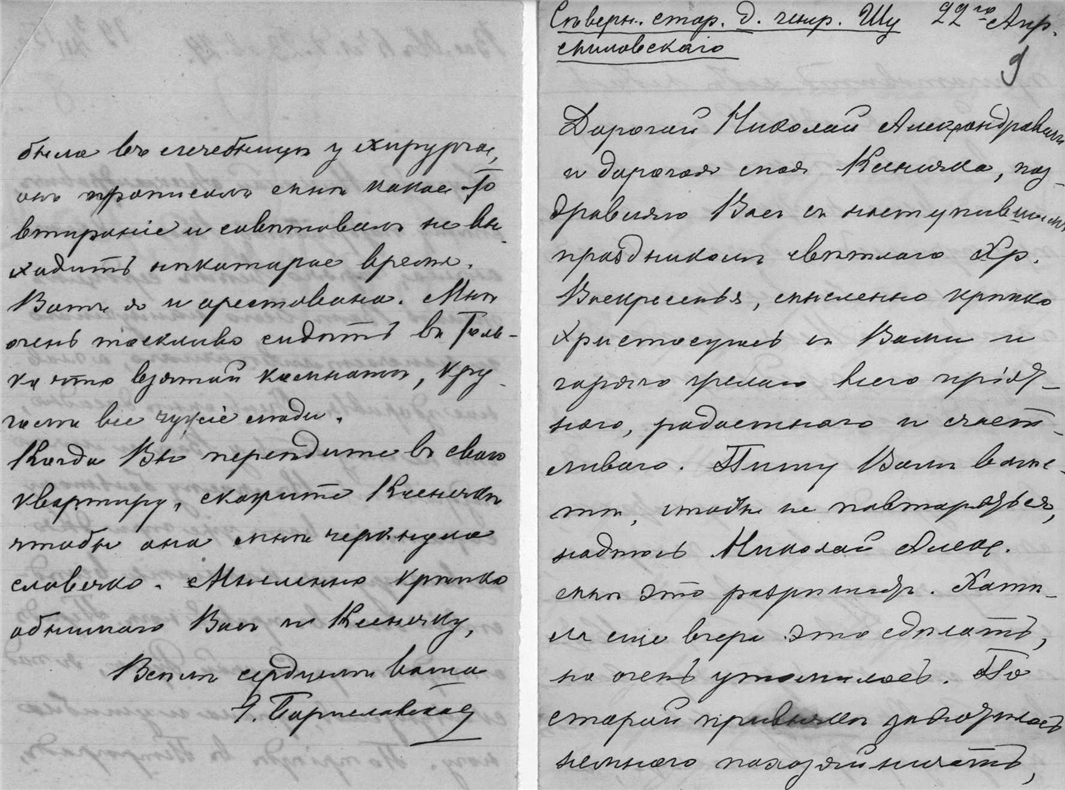 была въ лечебницѣ у хирурга,
онъ прописалъ мнѣ какое-то
втираніе и совѣтовалъ не вы-
ходить нѣкаторае время.
Вотъ я и арестована. Мнѣ
очень тоскливо сидѣть въ толь-
ко что взятой комнатѣ, кру-
гомъ все чужіе люди.
Когда Вы переѣдите въ свою
квартиру, скажите Ксеничкѣ
чтобы она мнѣ черкнула
словечко. Мысленно крѣпко
обнимаю Васъ и Ксеничку,
Всѣмъ сердцемъ ваша
Бариславская
Сѣверн. стор. д. генр. Шу
мловскаго
22го Апр.
9
Дорогой Николай Александравичъ
и дорогая моя Ксеничка, поз-
дравляю Васъ съ наступившимъ
праздникомъ свѣтлаго Хр.
Васкресенья, мысленно крѣпко
христосуюсь съ Вами и
горячо желаю всего пріят-
ного, радастного и счаст-
ливаго. Пишу Вамъ вмѣс-
тѣ, чтобы не павтаряться,
надѣюсь Николай Алекс.
мнѣ это разрѣшитъ. Хатѣ-
ла еще вчера это сдѣлать,
но очень утомилась. По
старой привычкѣ
немного похозяйничать,